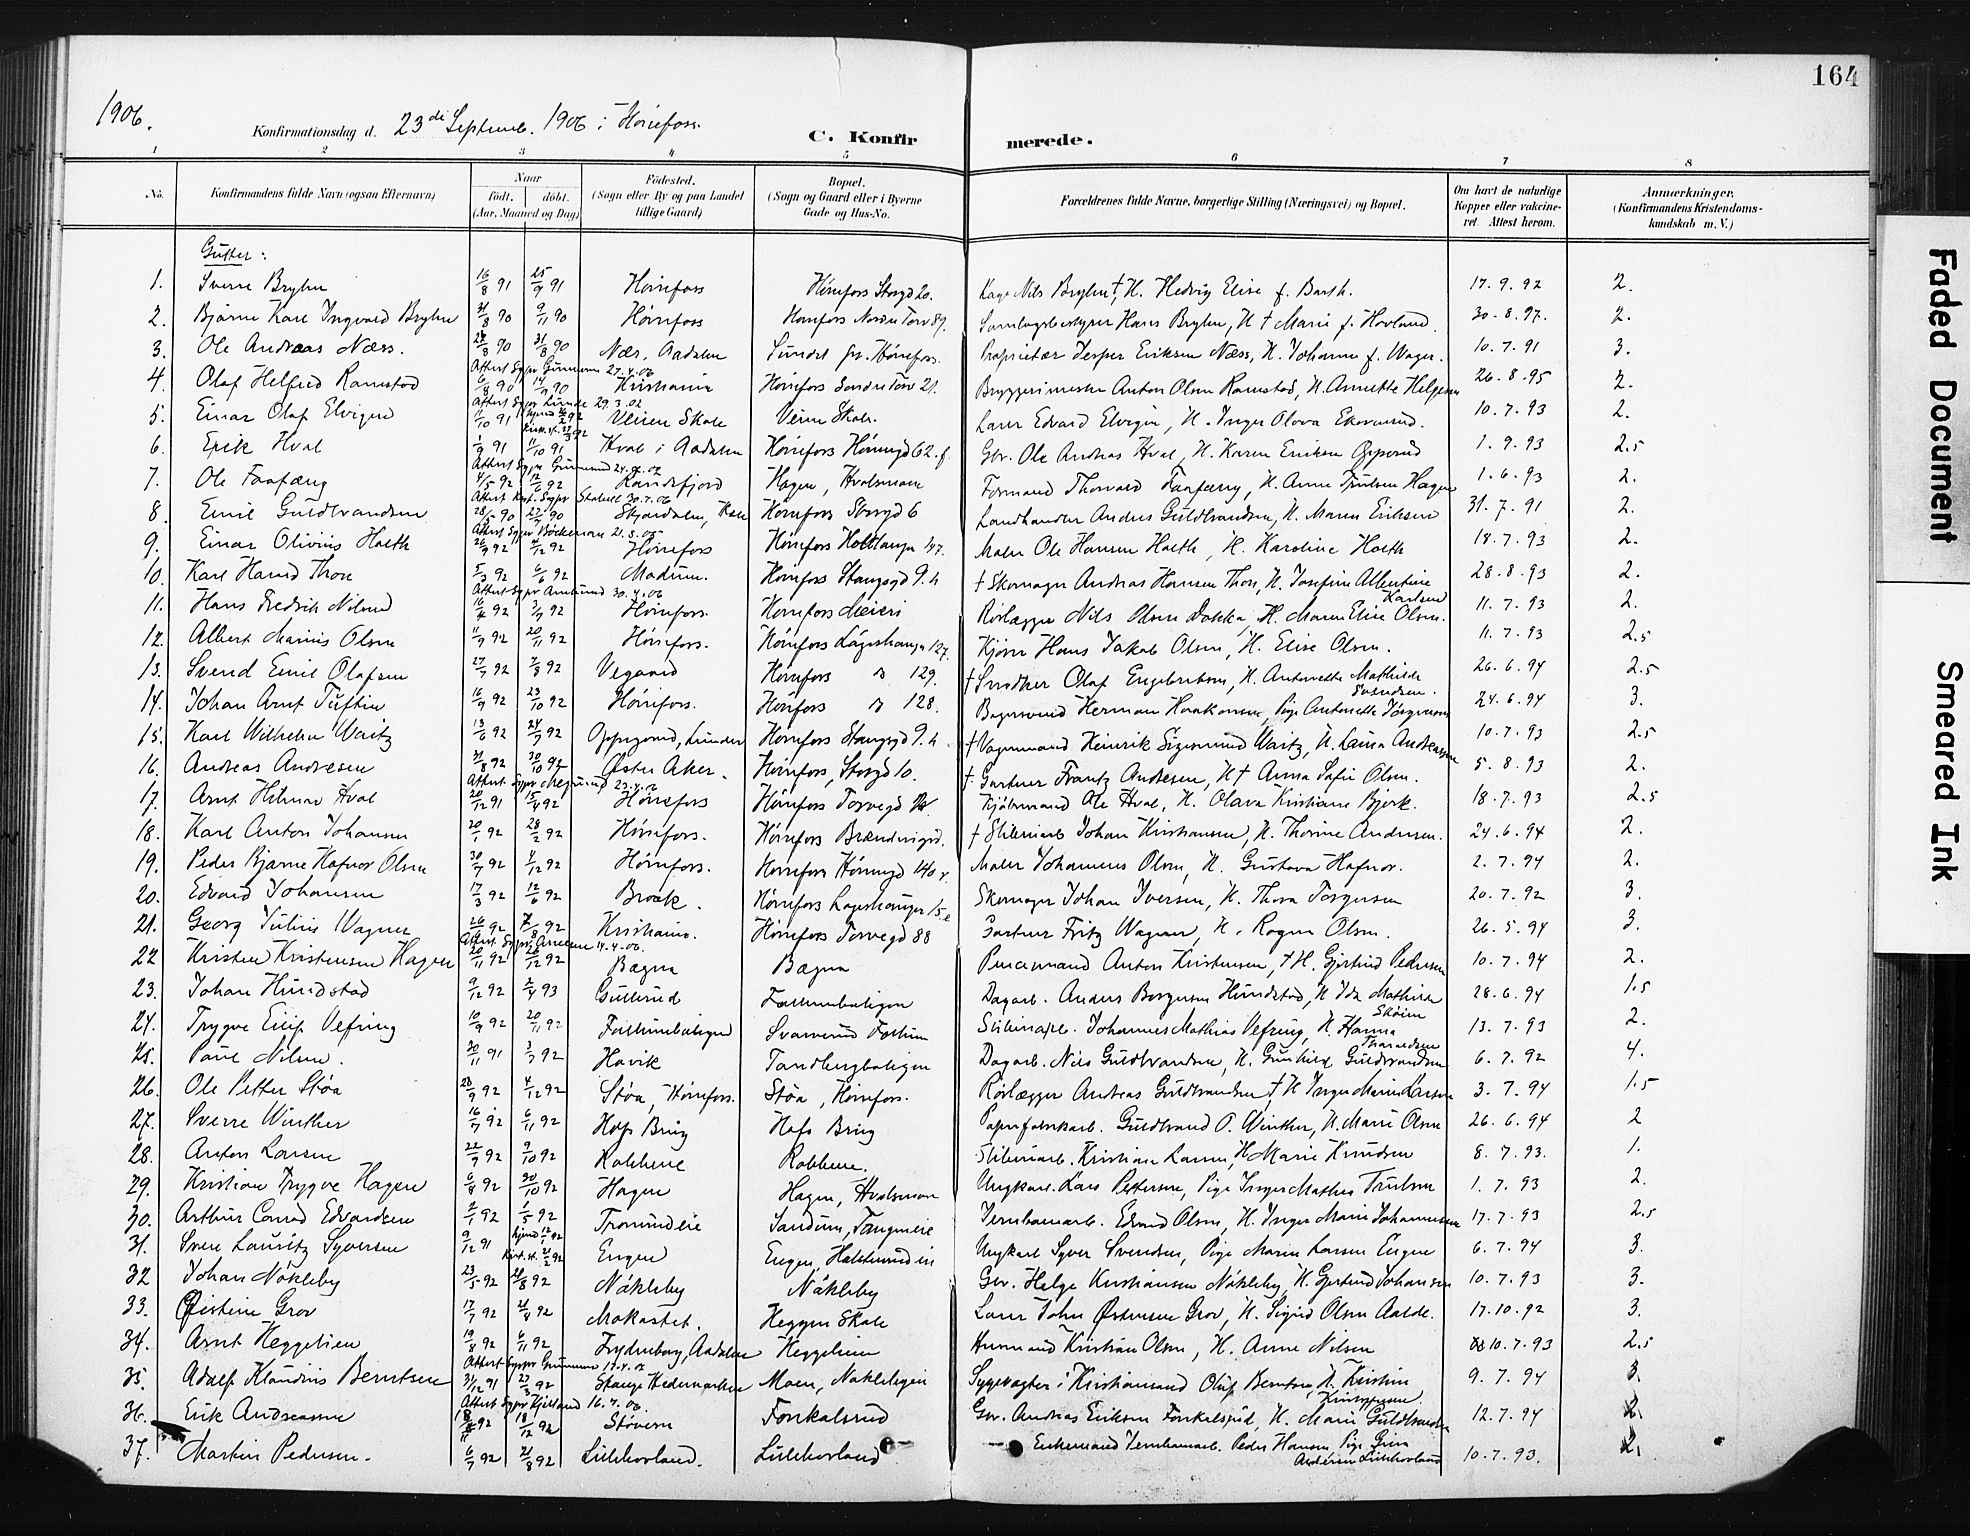 164
1906.
Konfirmationsdag d. 23de Septemb. 1906 i Hönefoss.
C. Konfirmerede.
1 2 3 4 5 6 7 8
No. Konfirmandens fulde Navn (ogsaa Efternavn) Naar födt. döbt. (Aar, Maaned og Dag) Födested. (Sogn eller By og paa Landet tillige Gaard) Bopæl. (Sogn og Gaard eller i Byerne Gade og Hus-No. Forældrenes fulde Navne, borgerlige Stilling (Næringsvei) og Bopæl. Om havt de naturlige Kopper eller vakcineret. Attest herom. Anmærkninger. (Konfirmandens Kristendomskundskab m. V.)
Gutter:
1. Sverre Bryhn 16/8 91 25/9 91 Hönefoss Hönefoss Storgd 20. Nils Bryhn †, H. Hedvig Elise f. Barth. 17.9.92 2.
2. Bjarne Karl Ingvald Bryhn 31/8 90 9/11 90 Hönefoss Hönefoss Nordre Torv 89. Hans Bryhn, H † Marie f. Hovland. 30.8.97. 2.
3. Ole Andreas Næss. 90 31/8 90 Næs, Aadalen Sundet pr. Hönefoss. Proprietær Jesper Eriksen Næss, H. Johanne f. Wager. 10.7.91 3.
Attest Sgpr 27.4.06
4. Olaf Helfred Ramstad 90 90 Kristiania Hönefoss Söndre Torv 21. Bryggerimester Anton Olsen Ramstad, H. Annette Helgesen 26.8.95 2.
Attest Sgpr Lunde 29.3.02
5. Einar Olaf Elvigen 11/10 91 Veien Skole Veien Skole. Lærer Edvard Elvigen, H. Inger Olava 10.7.93 2.
6. Erik Hval 1/9 91 11/10 91 Hval i Aadalen Hönefoss Hönengd 62.f. Gbr. Ole Andreas Hval, H. Karen Eriksen 1.9.93 2.5
Attest Sgpr
7. Ole Faafæng 4/5 92 12/6 92 Randsfjord Hagen, Hvalsmoen Formand Thorvald Faafæng, H. Anne Trulsen Hagen 1.6.93 2.
Attest 30.7.06
8. Emil Guldbrandsen 90 90 Skjærdalen, Hönefoss Storgd 6 Landhandler Anders Guldbrandsen, H. Maren Eriksen 31.7.91 2.
Attest Sgpr Böckman 21.3.05
9. Einar Olivius Holth 92 4/12 92 Hönefoss Hönefoss 147. Maler Ole Hansen Holth, H. Karoline Holth 18.7.93 2.
10. Karl Harald Thon 5/3 92 6/6 92 Modum. Hönefoss Stangsgd 9.h † Skomager Andreas Hansen Thon, H. Josefine Albertine Karlsen 28.8.93 2.
Attest Sgpr 30.4.06
11. Hans Fredrik Nilsen 92 3/7 92 Hönefoss. Hönefoss Meieri Rörlægger Nils Olsen Dokka, H. Maren Elise Olsen. 11.7.93 2.
12. Albert Marius Olsen 11/9 92 20/11 92 Hönefoss. Hönefoss Lögeshaugen 127. Kjörer Hans Jakob Olsen, H. Elise Olsen. 11.7.93 2.5
13. Svend Emil Olafsen 27/7 92 92 Vegaard Hönefoss " 129. † Snedker Olaf Engebretsen, H. Antonette Mathilde Svendsen. 26.6.94 2.5
14. Johan Arnt Tuftin 16/9 92 23/10 92 Hönefoss. Hönefoss " 128. Bagersvend Herman Haakonsen, Pige Antonette Jörgensen 24.6.94 3.
15. Karl Wilhelm Waitz 13/6 92 24/7 92 Oppegaard, Lunder Hönefoss Stangsgd 9.h † Vognmand Heinrik Sigismund Waitz, H. Laura Andreassen 10.7.93 2.5
16. Andreas Andresen 31/8 92 30/10 92 Öster Aker. Hönefoss, Storgd 10. † Gartner Frantz Andresen, H † Anna Sofie Olsen. 5.8.93 2.
Attest Sgpr
17. Arnt Hilmar Hval 20/12 91 92 Hönefoss Hönefoss Torvegd Kjöbmand Ole Hval, H. Olava Kristiane Bjerk. 18.7.93 2.5
18. Karl Anton Johansen 20/1 92 28/2 92 Hönefoss. Hönefoss † Sliberiarb. Johan Kristiansen, H. Thorine Andersen. 24.6.94 2.
19. Peder Bjarne Hafnor Olsen 30/7 92 92 Hönefoss. Hönefoss Hönengd 140 Maler Johannes Olsen, H. Gustava Hafnor. 2.7.94 2.
20. Edvard Johansen 17/3 92 12/6 92 Braak. Hönefoss Lögeshaugen 15.e Skomager Johan Iversen, H. Thora Torgersen 20.7.92 3.
21. Georg Julius Wagner 92 92 Kristiania. Hönefoss Torvegd 88 Gartner Fritz Wagner, H. Ragna Olsen. 26.5.94 3.
Attest. Sgpr. 14.4.06.
22 Kristen Kristensen Hagen 20/11 92 26/12 92 Bægna Bægna Anton Kristensen, † H. Gjertrud Pedersen 10.7.94 2.
23. Johan Hundstad 9/12 92 2/4 93 Gullerud Follumboligen Dagarb. Anders Borgersen Hundstad, H. Ida Mathilde Skoien 28.6.94 1.5
24. Trygve Eilif Vefring 10/9 92 20/11 92 Follumboligen Svarverud Follum Sliberiarb. Johannes Mathias Vefring, H. Hanna Tharaldsen 13.7.93 2.
25. Paul Nilsen. 20/11 91 3/7 92 Havik Tandbergboligen Dagarb. Nils Guldbrandsen, H. Gunhild Guldbrandsen 6.7.92 4.
26. Ole Petter Stöa 28/9 92 4/12 92 Stöa, Hönefoss. Stöa, Hönefoss. Rörlægger Andreas Guldbrandsen, † H Inger Marie Larsen 3.7.94 1.5
27. Sverre Winther 16/7 92 6/11 92 Hofs Brug Hofs Brug Papirfabrikarb. Guldbrand O. Winther, H. Marie Olsen 26.6.94 2
28. Anton Larsen 22/7 92 9/10 92 Kolbene Kolbene. Sliberiarb. Kristian Larsen, H Marie Knudsen 8.7.93. 1.
29. Kristian Trygve Hagen 6/8 92 30/10 92 Hagen Hagen, Hvalsmoen Ungkarl Lars Pettersen, Pige Inger Mathea Trulsen 1.7.93 2.
30. Arthur Conrad Edvardsen 2/1 92 1/5 92 Jernbanearb. Edvard Olsen, H. Inger Marie Johannesen 17.7.93 2.5
31. Sven Lauritz Syversen 9/12 91 Engen Engen, Ungkarl Syver Svendsen, Pige Maren Larsen Engen 6.7.94 3.
32 Johan Nökleby 23/5 92 92 Nökleby Nökleby Gbr. Helge Kristiansen Nökleby, H. Gjertrud Johansen 10.7.93 3.
33. Öistein Grov 17/7 92 92 Mokastet. Heggen Skole Lærer John Östensen Grov, H. Sigrid Olsen 17.10.92 3.
34. Arnt Heggelien 19/8 92 6/11 92 Frydenberg, Aadalen Heggelien Kristian Olsen, H. Anne Nilsen 10.7.93 2.5
Attest Sgpr
35. Adolf Klaudius Berntsen 31/12 91 27/3 92 Stange Hedemarken Moen, Noklebyeie Sygevogter i Kristiansand Oluf Berntsen, H. Kristin 9.7.94 3.
Attest Sgpr 16.4.06.
36. Erik Andreassen 92 18/12 92 Stövern Fonkalsrud Gbr. Andreas Eriksen Fonkalsrud, H. Marie Guldbrandsen 12.7.94 2.
37. Martin Pedersen. 6/7 92 21/8 92 Lillehovland. Lillehovland Enkemand Jernbanearb. Peder Hansen, Pige Andersen Lillehovland 10.7.93. 2.
Faded Document
Smeared Ink